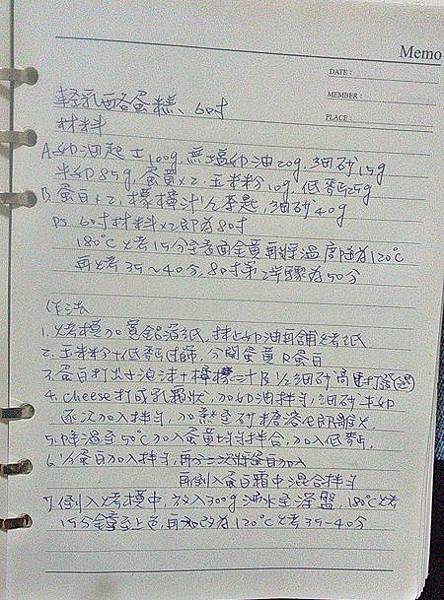 Memo
DATE：
MEMBER：
PLACE：
輕乳酪蛋糕、6吋
材料
A. 奶油起士100g, 無塩奶油20g, 細砂15g
牛奶85g, 蛋黃×2, 玉米粉10g, 低筋25g
B. 蛋白×2, 檸檬汁½茶匙, 細砂40g
PS 6吋材料×2即為8吋
180℃烤15分全表面全黃再將溫度降為120℃
再烤35~40分, 8吋第2步驟為50分
作法
1. 烤模加置鋁箔紙, 抹上奶油再舖烤紙
2. 玉米粉+低筋过篩, 分開蛋黃及蛋白
3. 蛋白打出泡沫+檸檬汁及½細砂高速打發
4. cheese打成乳霜状, 加奶油拌勻, 細砂牛奶
逐次加入拌勻, 加熱至砂糖溶化即離火.
5. 降溫至50℃加入蛋黃均勻拌合, 加入低筋.
6. ⅓蛋白加入拌勻, 再分二次將蛋白加入
再倒入蛋霜中混合拌勻
7. 倒入烤模中, 放入300g沸水至深盤, 180℃烤
15分全至上色, 再改為120℃烤35~40分